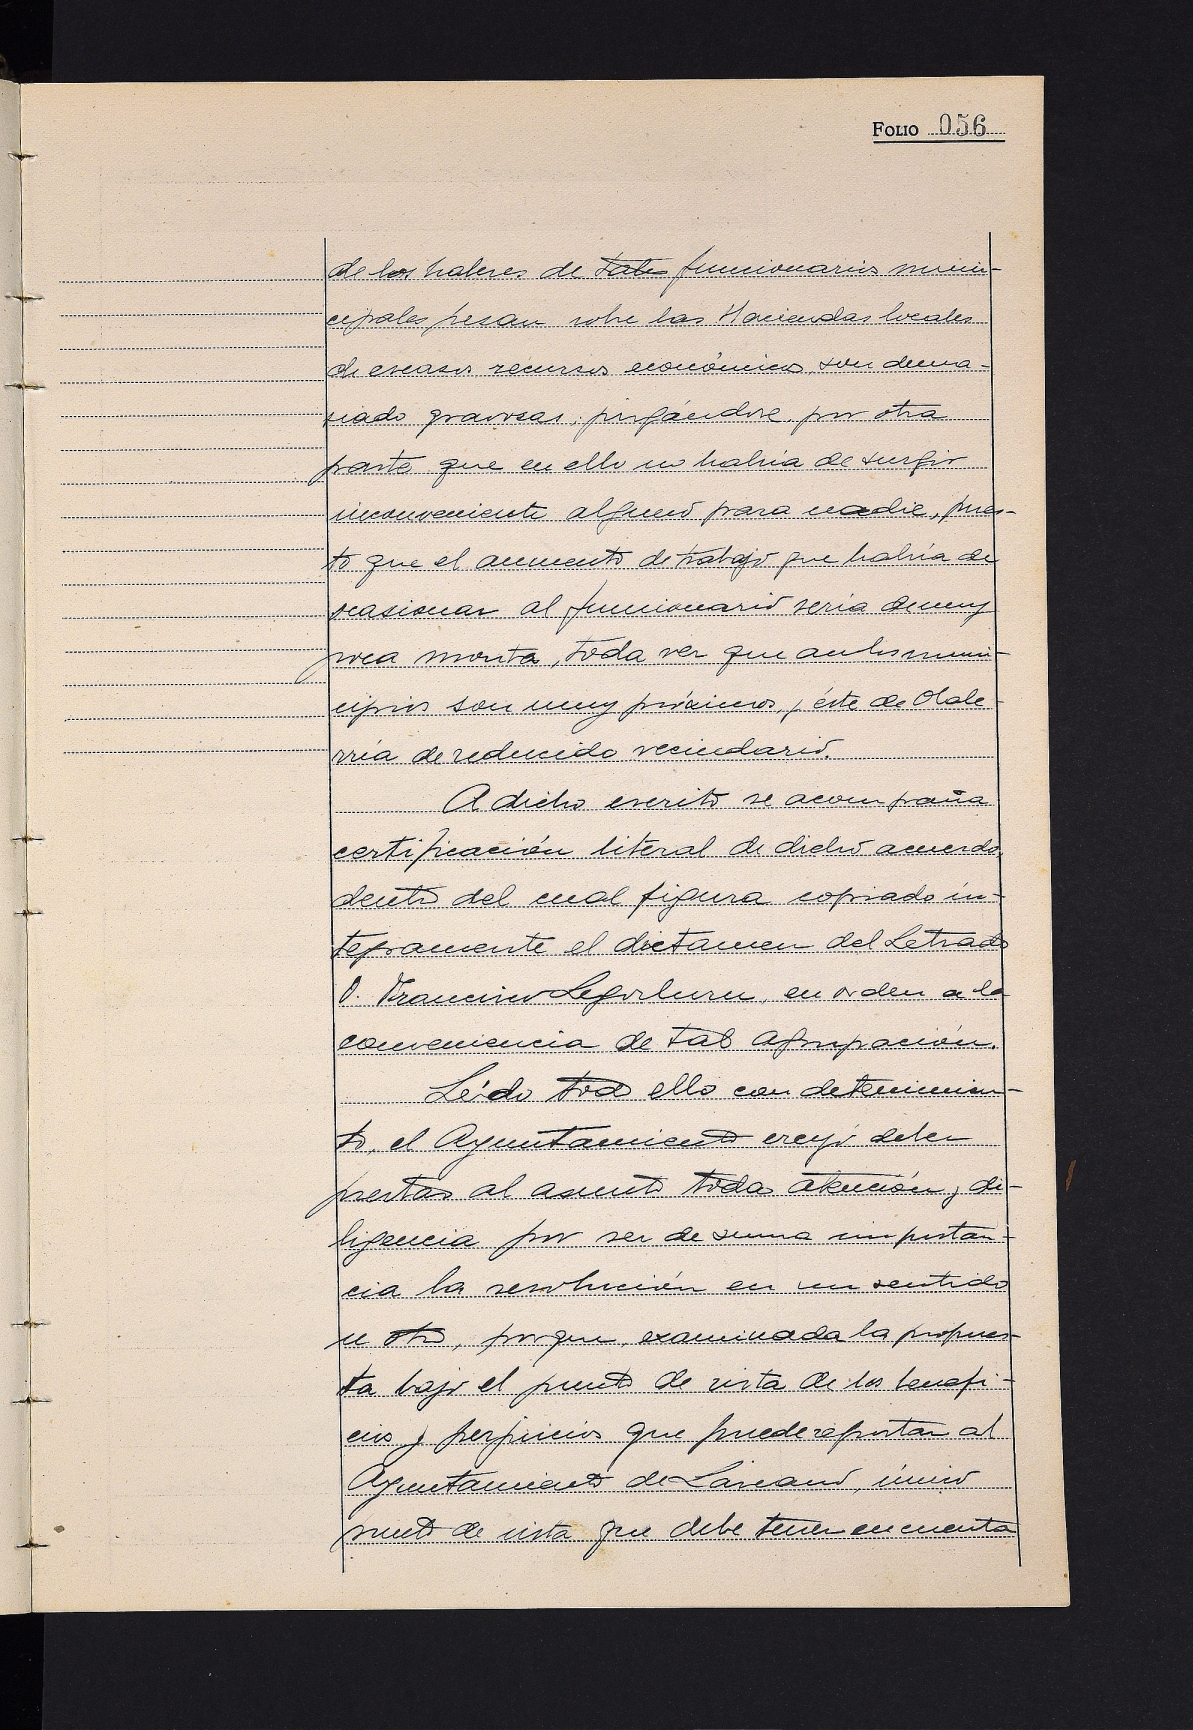 FOLIO 056
de los haberes de tales funcionarios muni-
cipales pesan sobre las Haciendas locales
de escasos recursos económicos son dema-
siado gravosas; juzgándose, por otra
parte que en ello no habría de surgir
inconveniente alguno para nadie, pues-
to que el aumento de trabajo que habría de
ocasionar al funcionario sería de muy
poca monta, toda vez que ambos muni-
cipios son muy próximos, y éste de Olabe-
rría de reducido vecindario.
A dicho escrito se acompaña
certificación literal de dicho acuerdo,
dentro del cual figura copiado ín-
tegramente el dictamen del Letrado
D. Francisco Legorburu, en orden a la
conveniencia de tal Agrupación.
Leído todo ello con detenimien-
to, el Ayuntamiento creyó deber
prestar al asunto toda atención y di-
ligencia por ser de suma importan-
cia la resolución en un sentido
u otro, porque, examinada la propues-
ta bajo el punto de vista de los benefi-
cios y perjuicios que puede reportar al
Ayuntamiento de Lazcano, único
punto de vista que debe tener en cuenta